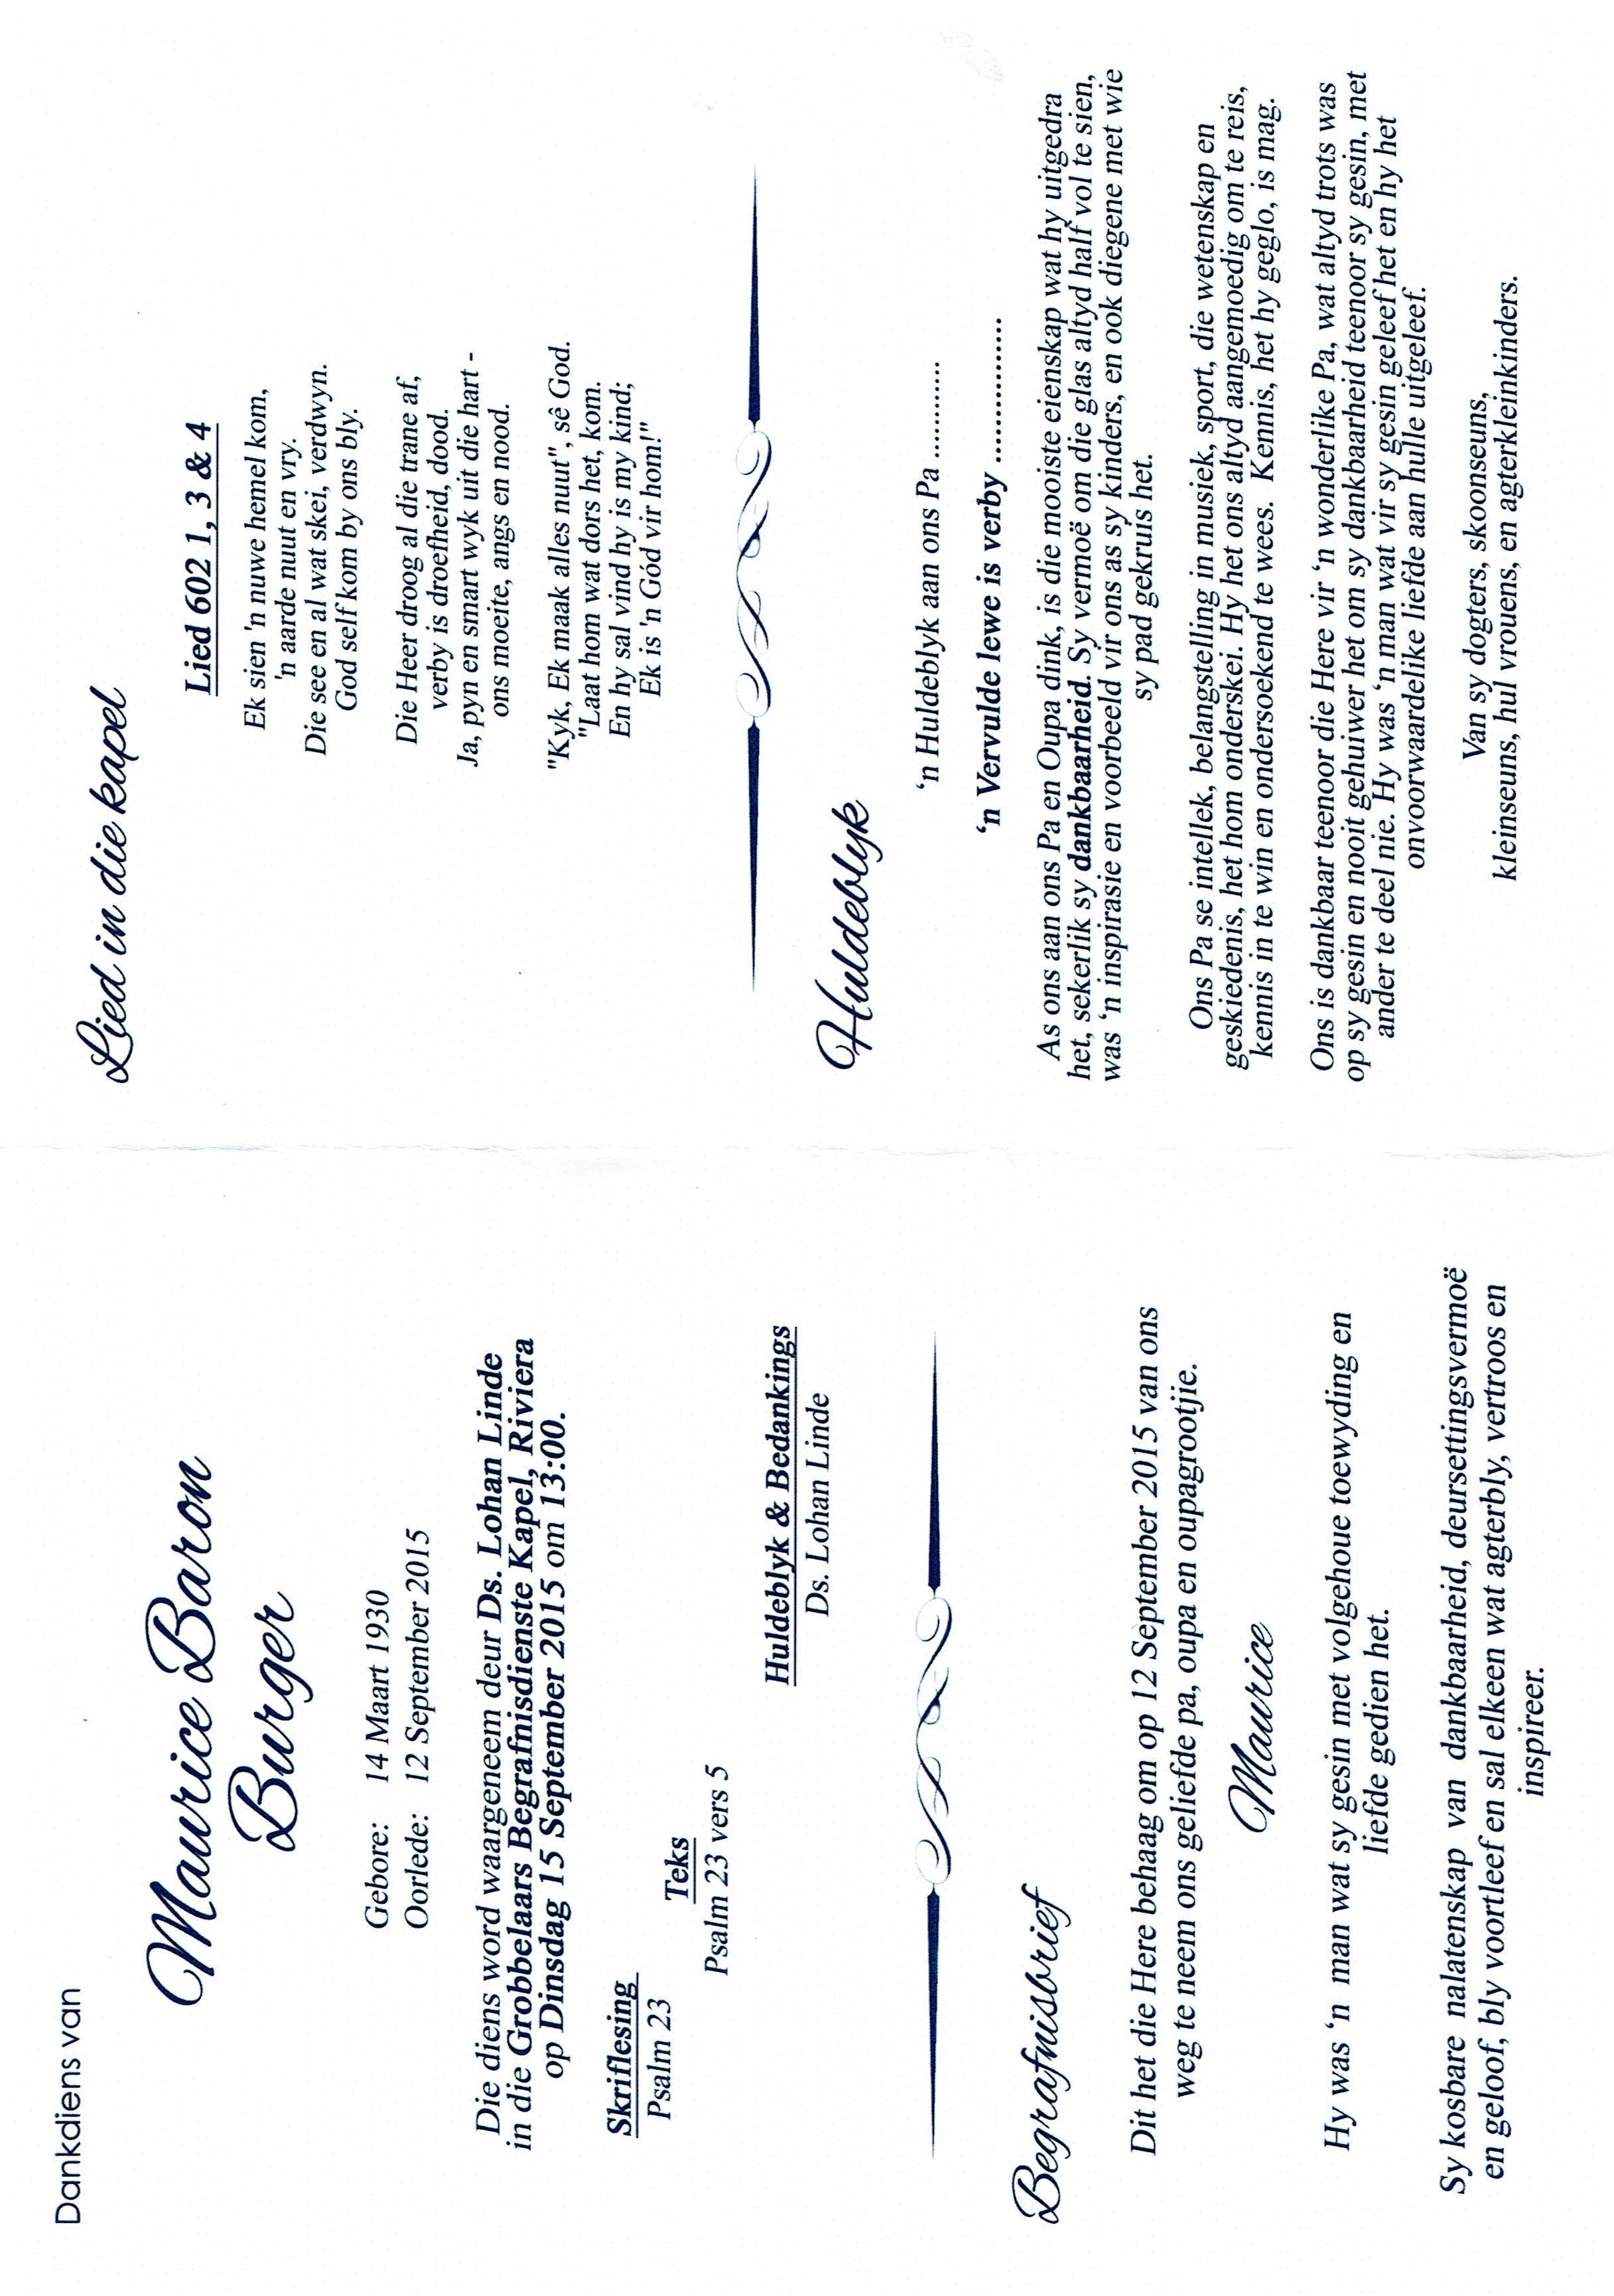 Dankdiens van
Maurice Baron
Burger
Gebore: 14 Maart 1930
Oorlede: 12 September 2015
Die diens word waargeneem deur Ds. Lohan Linde
in die Grobbelaars Begrafnisdienste Kapel, Riviera
op Dinsdag 15 September 2015 om 13:00.
Skriflesing
Psalm 23
Teks
Psalm 23 vers 5
Huldeblyk & Bedankings
Ds. Lohan Linde
Begrafnisbrief
Dit het die Here behaag om op 12 September 2015 van ons
weg te neem ons geliefde pa, oupa en oupagrootjie.
Maurice
Hy was ‘n man wat sy gesin met volgehoue toewyding en
liefde gedien het.
Sy kosbare nalatenskap van dankbaarheid, deursettingsvermoë
en geloof, bly voortleef en sal elkeen wat agterbly, vertroos en
inspireer.
Lied in die kapel
Lied 602 1, 3 & 4
Ek sien 'n nuwe hemel kom,
'n aarde nuut en vry.
Die see en al wat skei, verdwyn.
God self kom by ons bly.
Die Heer droog al die trane af,
verby is droefheid, dood.
Ja, pyn en smart wyk uit die hart -
ons moeite, angs en nood.
"Kyk, Ek maak alles nuut", sê God.
"Laat hom wat dors het, kom.
En hy sal vind hy is my kind;
Ek is 'n Gód vir hom!"
Huldeblyk
‘n Huldeblyk aan ons Pa ............
‘n Vervulde lewe is verby ................
As ons aan ons Pa en Oupa dink, is die mooiste eienskap wat hy uitgedra
het, sekerlik sy dankbaarheid. Sy vermoë om die glas altyd half vol te sien,
was ‘n inspirasie en voorbeeld vir ons as sy kinders, en ook diegene met wie
sy pad gekruis het.
Ons Pa se intellek, belangstelling in musiek, sport, die wetenskap en
geskiedenis, het hom onderskei. Hy het ons altyd aangemoedig om te reis,
kennis in te win en ondersoekend te wees. Kennis, het hy geglo, is mag.
Ons is dankbaar teenoor die Here vir ‘n wonderlike Pa, wat altyd trots was
op sy gesin en nooit gehuiwer het om sy dankbaarheid teenoor sy gesin, met
ander te deel nie. Hy was ‘n man wat vir sy gesin geleef het en hy het
onvoorwaardelike liefde aan hulle uitgeleef.
Van sy dogters, skoonseuns,
kleinseuns, hul vrouens, en agterkleinkinders.